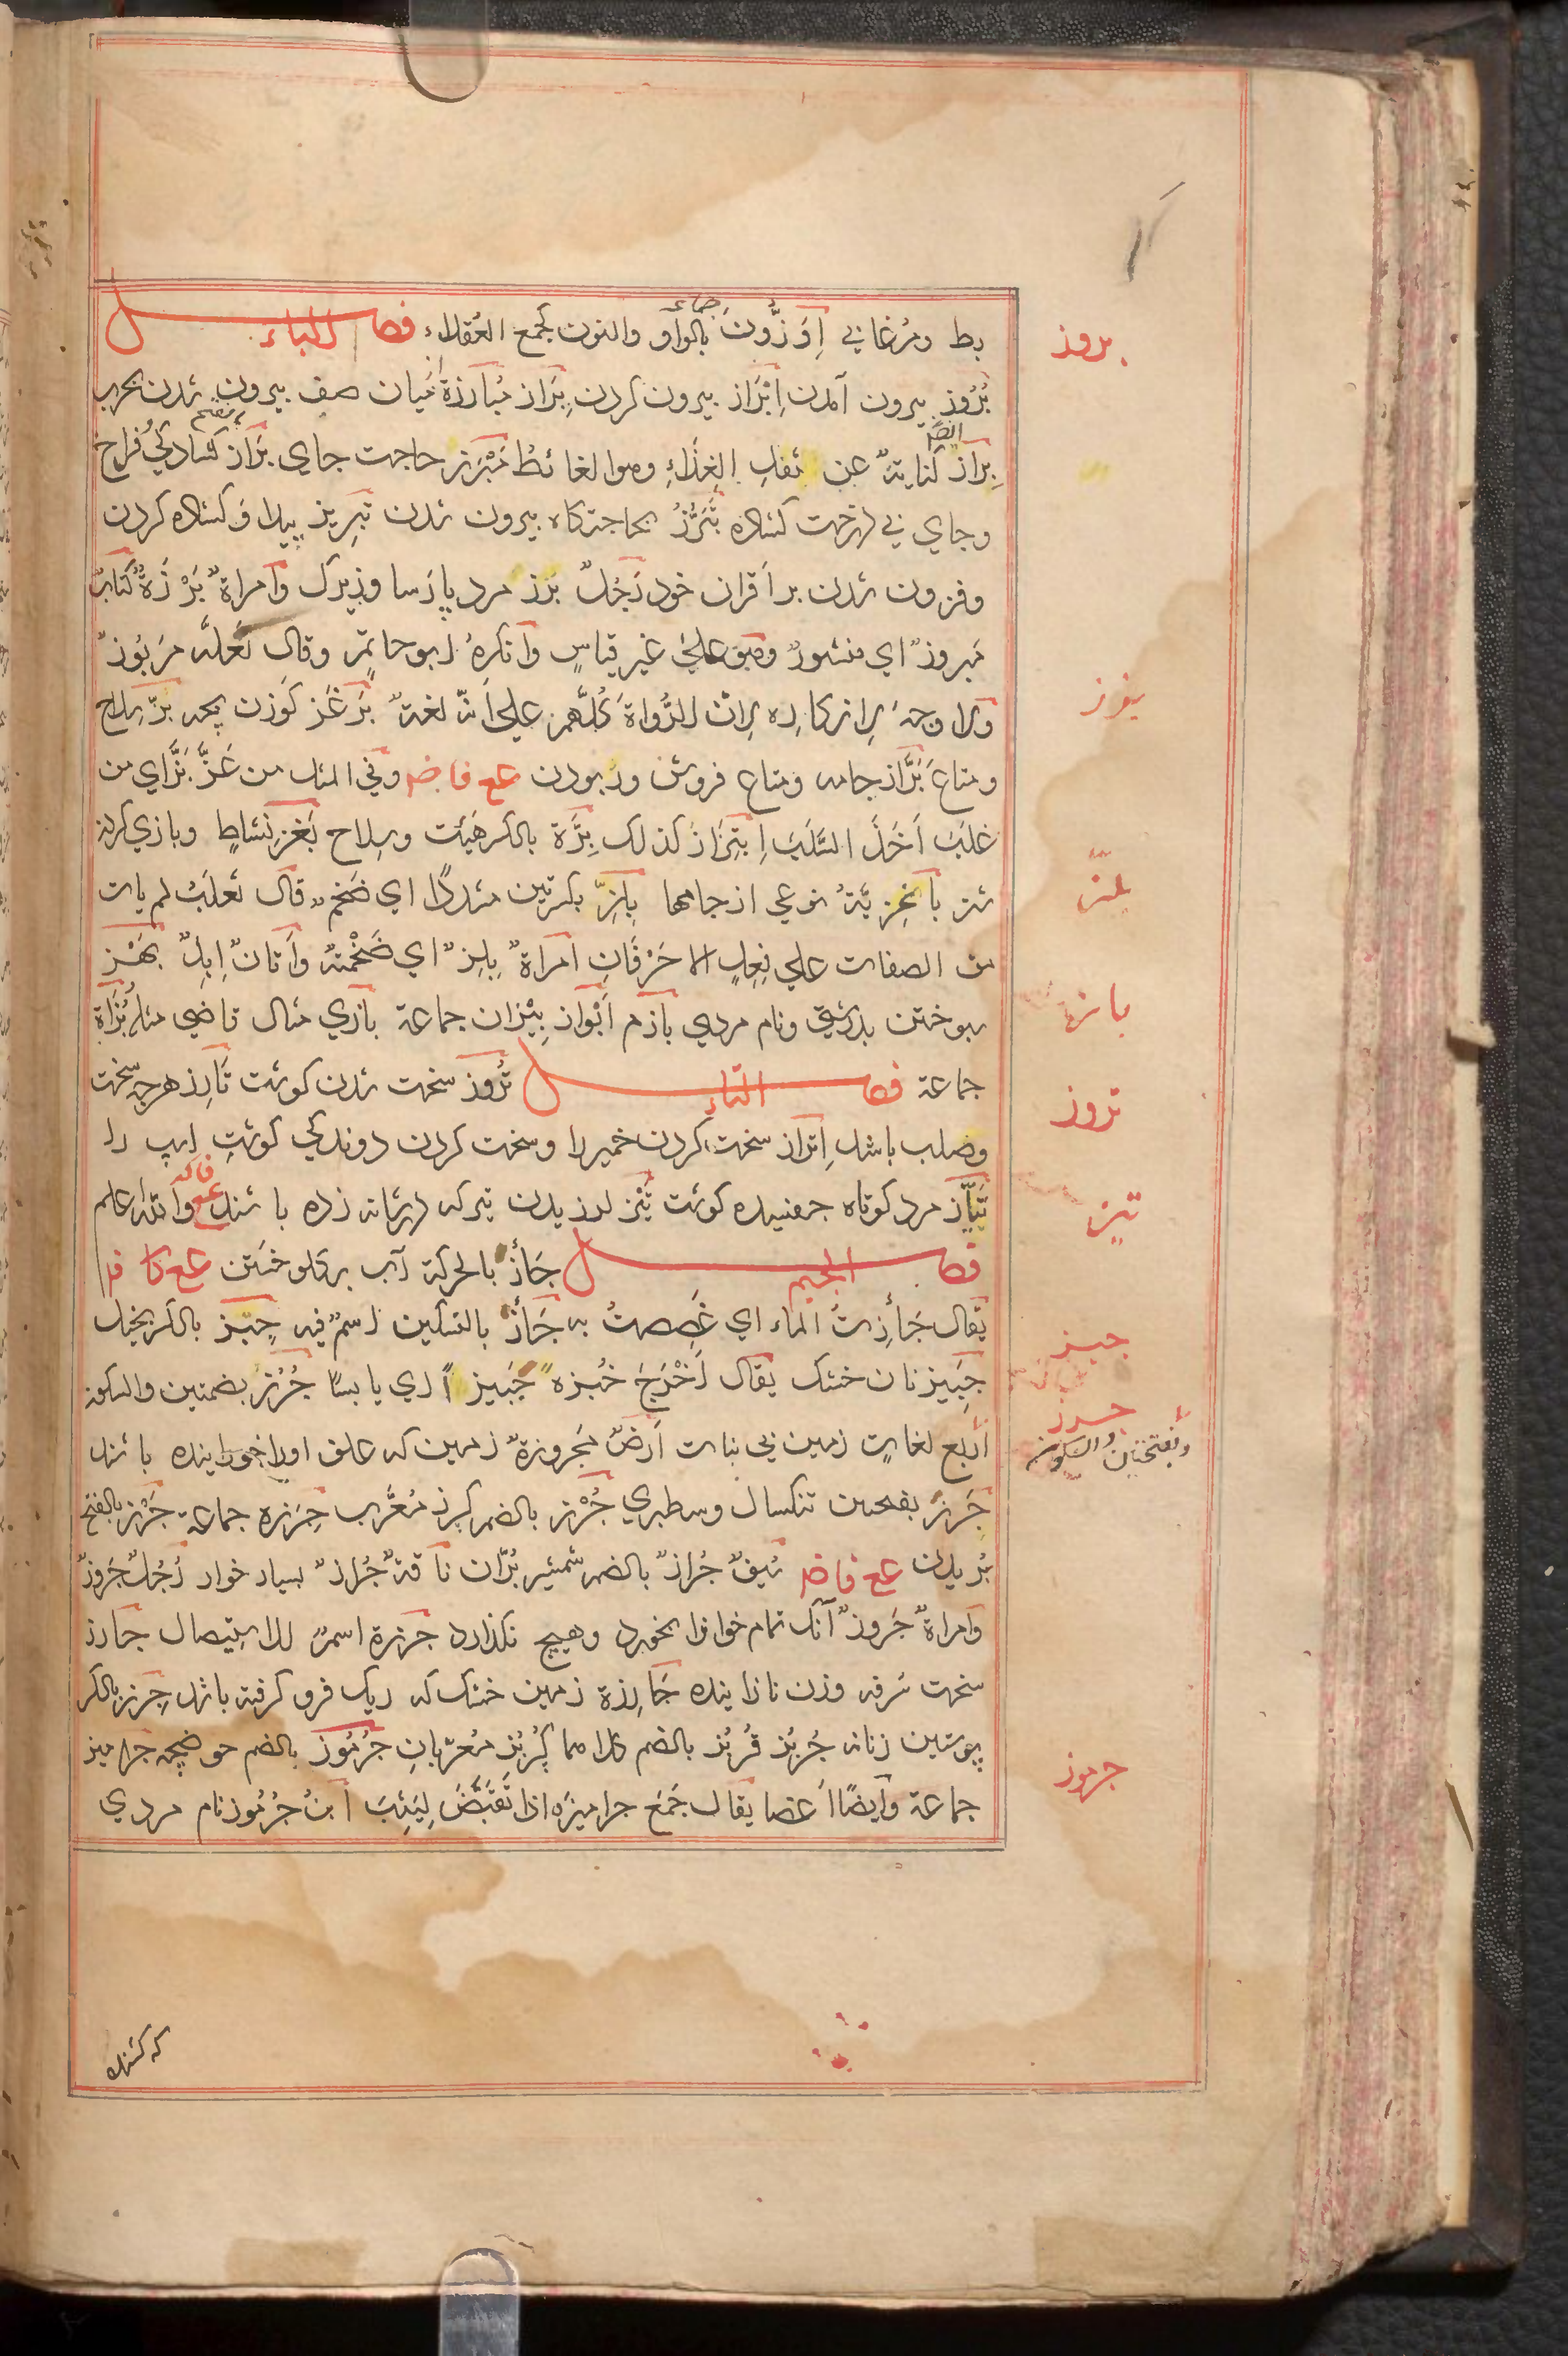 بط ومُرغابي اِوَزُّونَ بالواو والنون كجمع العُقلاء فصل الباء
جماعة
بُرُوز بيرون آمدن اِبْرَاز بيرون كردن بِرَاز مُبَارَزَة ميان صف بيرون شدن بحرب
بِرَاز كناية عن ثُفلِ الغِذَاءِ وهو الغائط مَبْرَز حاجت جاي بَرَاز كشادكي فراخ
وجاي بي درخت كشاده تَبَرُّز بحاجتكاه بيرون شدن تبريز پيدا وكشاده كردن
وفزون شدن بر اَقران خود رَجُلٌ بَرْز مرد پارسا وزيرك وامراةٌ بَرْزَةٌ كتابٌ
مَبروزٌ اي منشورٌ وهو علي غير قياسٍ وانكرهُ ابو حاتم وقال لَعَلَّه مَزبُورٌ
ولا وجهَ لانكاره لان الرُّواةَ كُلَّهم علي اَنّه لغةٌ بَرغَز كَوزن بچه بَزّ سلاح
ومتاع بَزَّاز جامه ومتاع فروش وربودن مع فاضم وفي المثل من عَزَّ بَزَّ اي من
غلَبَ اَخَذَ السَّلَبَ اِبتِزَاز كذلك بِزَّة بالكسر هيئت وسلاح بَغْز نشاطٍ وبازي كردن
شتر باغزيّة نوعي از جامها بِلِزّ بكسرتين مشددًا اي ضخم قال ثعلبُ لم يات
من الصفات علي فِعِلٍ الا حَرفَانِ امراةٌ بِلِزٌ اي ضَخْمَةٌ واَتانٌ اِبِلٌ بَهْز
سوختن بدرشتي ونام مردي باز م اَبْوَاز بِيْزَان جماعة بازي مثال قاضي مثله بُزَاة
جماعة فصل التاء تُرُوز سخت شدن كوشت تَارِز هرچه سخت
وصلب باشد اِتراز سخت كردن خمير را وسخت كردن دوندكي كوشتِ اسپ را
تَيَّاز مرد كوتاه جفسيده كوشت تَيْز لرزيدن تير كه در نشانه زده باشند مع فاكه والله اعلم
فصل الجيم جَأَز بالحركة آب بركلو خستن مع كافم
يقال جَأِزتُ الماء اي غَصِصتُ به جَأْز بالتسكين اسمٌ فيه جِبْز بالكسر بخيل
جَبِيز نان خشك يقال اَخْرَجَ خُبزهُ جَبِيزًا اي يابسًا جُرُز بضمتين والسكون
اَربع لغاتٍ زمين بي نبات اَرضٌ مَجروزةٌ زمين كه علف او را خورانيده باشند
جَرَز بفتحتين تنكسال وسطبري جُرْز بالضم كرز مُعَرَّب جِرَزة جماعة جَرْز بالفتح
بُريدن مع فاضم سَيفٌ جُرازٌ بالضم شمشير بُرَّان ناقةٌ جُرازٌ بسيار خوار رَجُلٌ جَروزٌ
وامراةٌ جَروزٌ آنك تمام خوانرا بخورد وهيچ نكذارد جَرْزة اسمٌ للاستيصال جارز
سخت سُرفه وزن نازاينده جَارِزة زمين خشك كه ريك فرو كرفته باشد جِرْز بالكسر
پوستين زنانه جُربُز قُربُز بالضم كلاهما كُربُز معرّبانِ جُرْمُوز بالضم حوضچه جراميز
جماعة وايضًا اعضا يقال جَمَعَ جراميزَه اذا تَقَبَّضَ لِيَثِبَ ابنُ جُرْمُوز نام مردي
كه كشنده
بروز
بغز
بلز
باز
تروز
تيز
جبز
جرز
وبفتحتين والسكون
جرموز